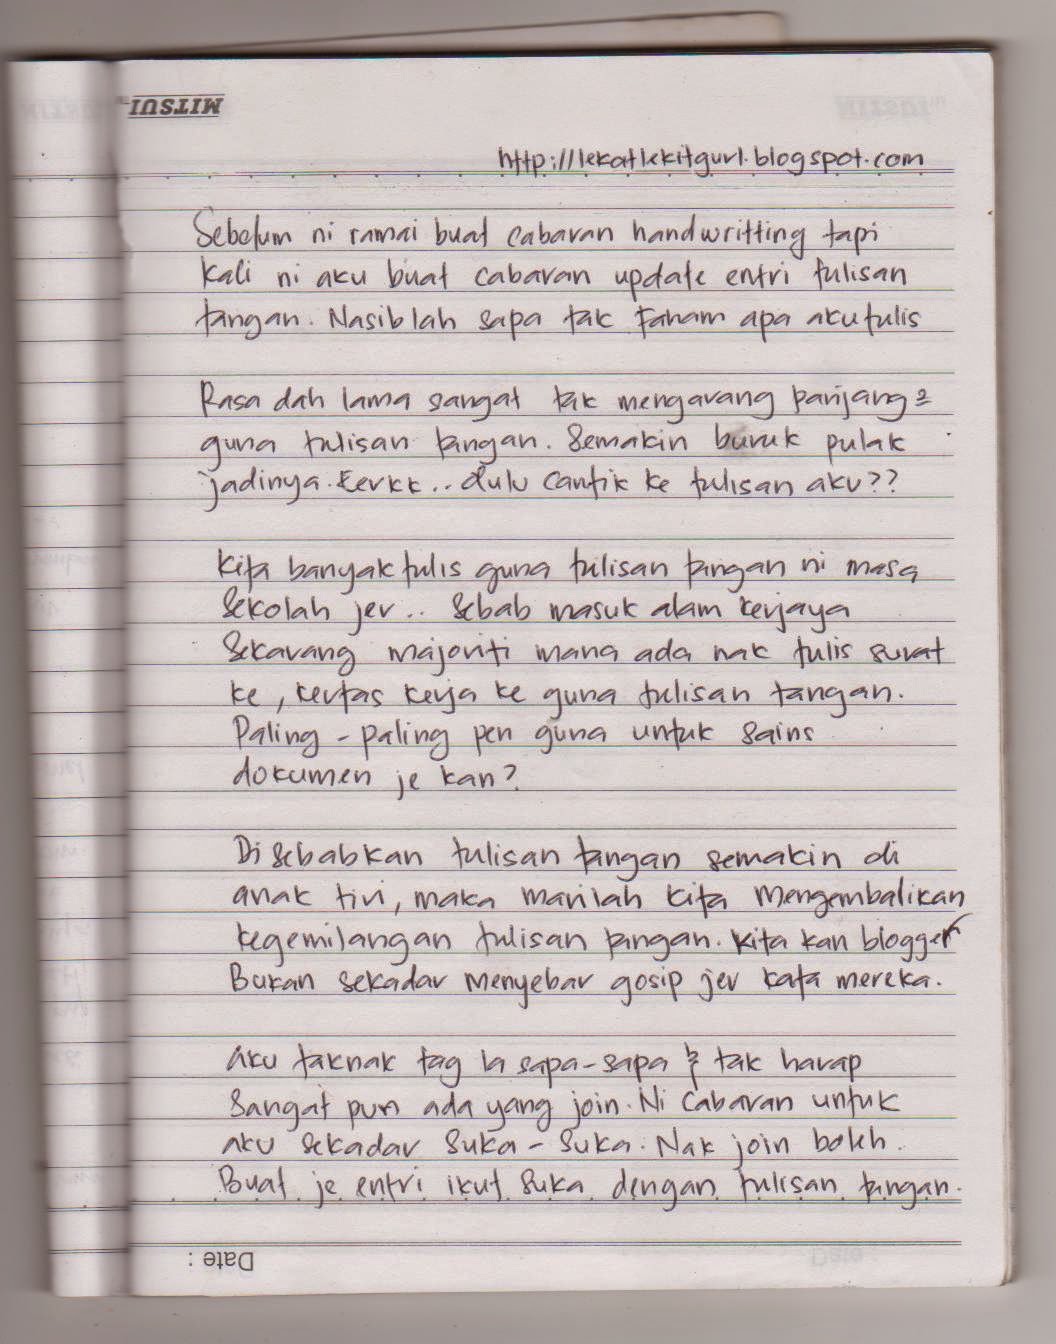 MITSUI
http://lekatlekitgurl.blogspot.com
Sebelum ni ramai buat cabaran handwritting tapi
kali ni aku buat cabaran update entri tulisan
tangan. Nasiblah sapa tak faham apa aku tulis
Rasa dah lama sangat tak mengarang panjang2
guna tulisan tangan. Semakin buruk pulak
jadinya. Eerkk.. dulu cantik ke tulisan aku??
Kita banyak tulis guna tulisan tangan ni masa
sekolah jer.. sebab masuk alam kerjaya
sekarang majoriti mana ada nak tulis surat
ke, kertas kerja ke guna tulisan tangan.
Paling-paling pen guna untuk sains
dokumen je kan?
Disebabkan tulisan tangan semakin di
anak tiri, maka marilah kita mengembalikan
kegemilangan tulisan tangan. Kita kan blogger
Bukan sekadar menyebar gosip jer kata mereka.
Aku taknak tag la sapa-sapa & tak harap
sangat pun ada yang join. Ni cabaran untuk
aku sekadar suka-suka. Nak join boleh.
Buat je entri ikut suka dengan tulisan tangan.
Date :